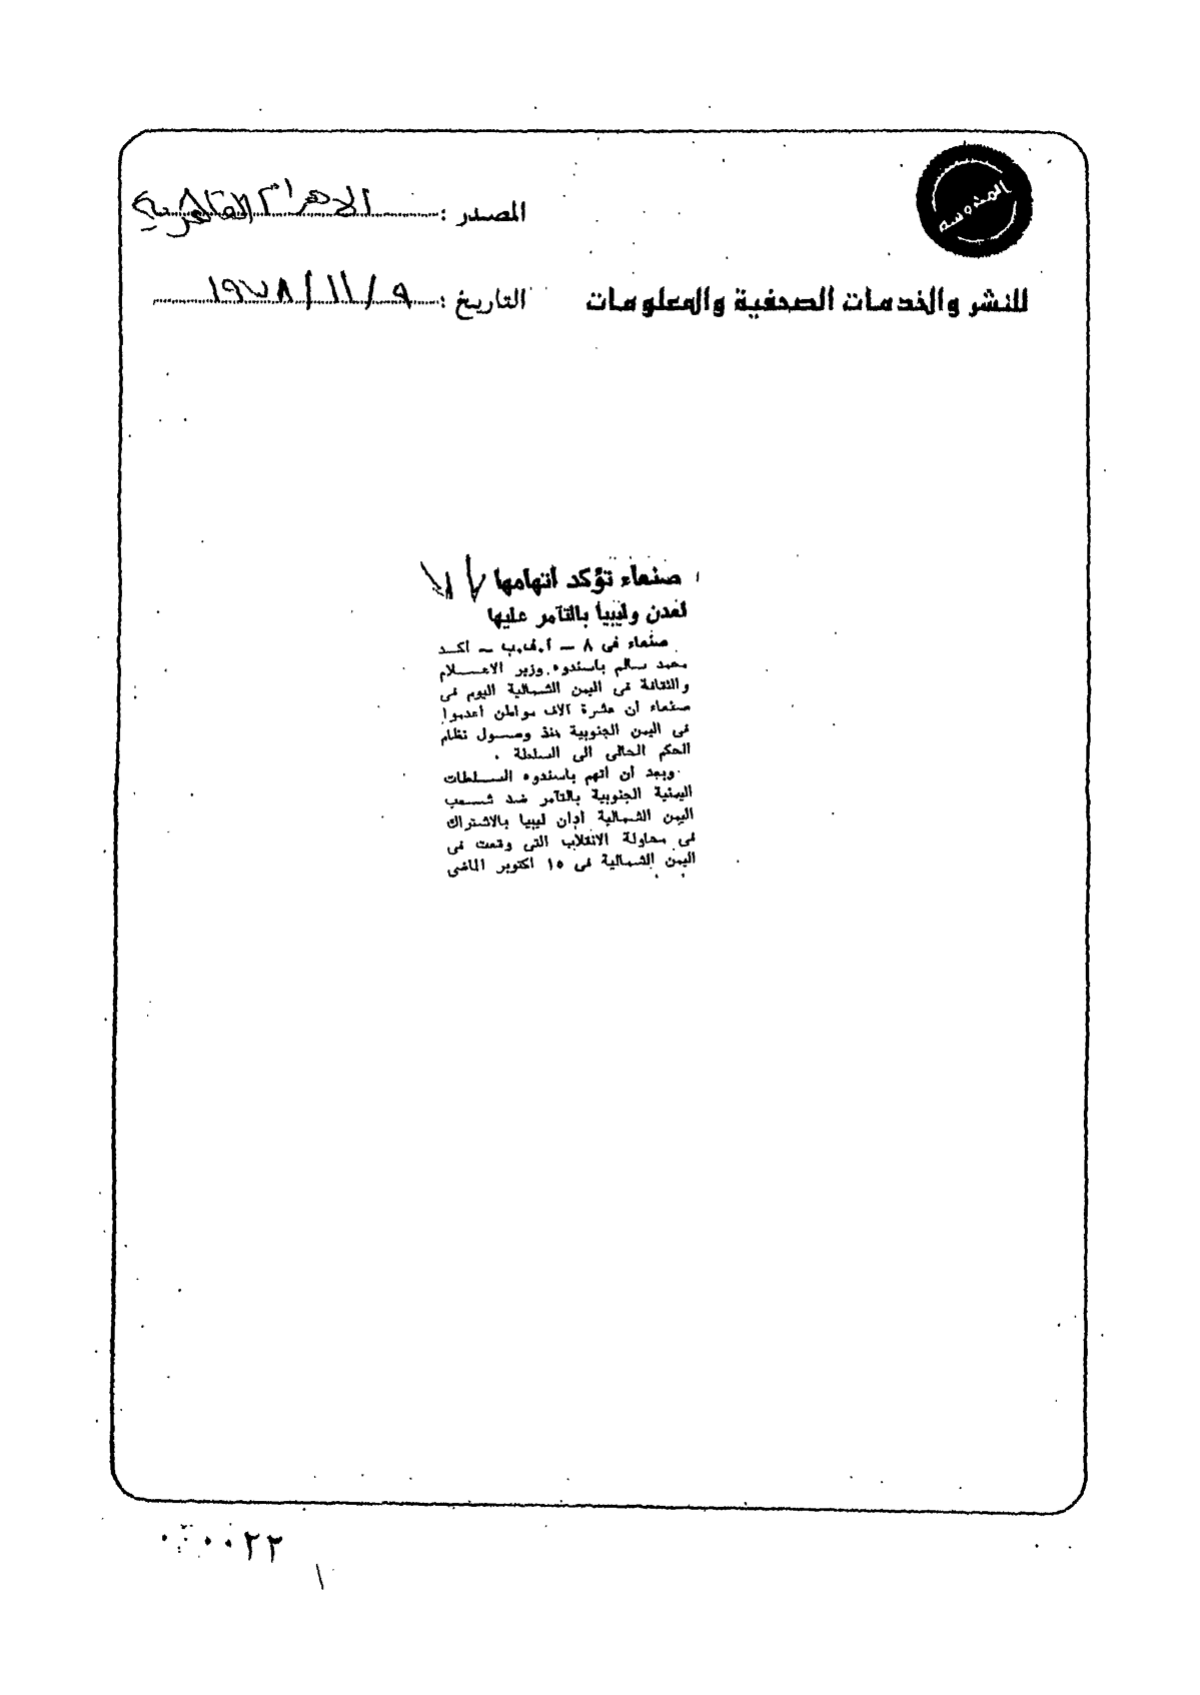 المحروسة
المصدر : الاهرام القاهرية
للنشر والخدمات الصحفية والمعلومات
التاريخ : ٩ / ١١ / ١٩٧٨
صنعاء تؤكد اتهامها
لعدن وليبيا بالتآمر عليها
صنعاء فى ٨ ــ ا.ف.ب ــ أكد
محمد سالم باسندوه وزير الاعلام
والثقافة فى اليمن الشمالية اليوم فى
صنعاء أن عشرة آلاف مواطن أعدموا
فى اليمن الجنوبية منذ وصول نظام
الحكم الحالى الى السلطة .
وبعد أن اتهم باسندوه السلطات
اليمنية الجنوبية بالتآمر ضد شعب
اليمن الشمالية ادان ليبيا بالاشتراك
فى محاولة الانقلاب التى وقعت فى
اليمن الشمالية فى ١٥ اكتوبر الماضى
٢٢